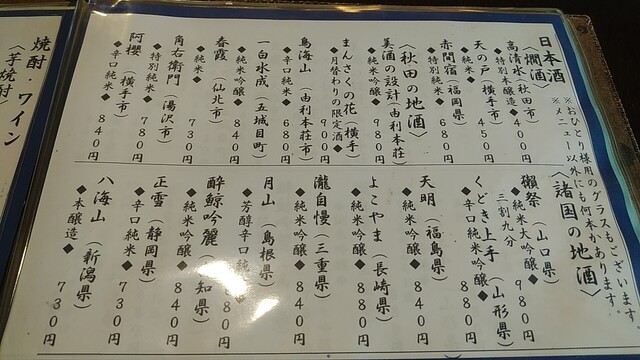 日本酒
※おひとり様用のグラスもございます。
※メニュー以外にも何本かあります。
〈燗酒〉
高清水（秋田市）
◆特別本醸造◆ 400円
天の戸（横手市）
◆純米◆ 450円
赤間宿（福岡県）
◆特別純米◆ 680円
〈秋田の地酒〉
美酒の設計（由利本荘）
◆純米吟醸◆ 980円
まんさくの花（横手）
◆月替わりの限定酒◆ 900円
鳥海山（由利本荘市）
◆辛口純米◆ 680円
一白水成（五城目町）
◆純米吟醸◆ 840円
春霞（仙北市）
◆純米◆ 730円
角右衛門（湯沢市）
◆特別純米◆ 780円
阿櫻（横手市）
◆辛口純米◆ 840円
〈諸国の地酒〉
獺祭（山口県）
◆純米大吟醸◆ 980円
三割九分
くどき上手（山形県）
◆辛口純米吟醸◆ 880円
天明（福島県）
◆純米吟醸◆ 840円
よこやま（長崎県）
◆純米吟醸◆ 840円
瀧自慢（三重県）
◆純米吟醸◆ 840円
月山（島根県）
◆芳醇辛口純米◆ 80円
酔鯨吟麗（知県）
◆純米吟醸◆ 880円
正雪（静岡県）
◆辛口純米◆ 730円
八海山（新潟県）
◆本醸造◆ 730円
焼酎・ワイン
〈芋焼酎〉